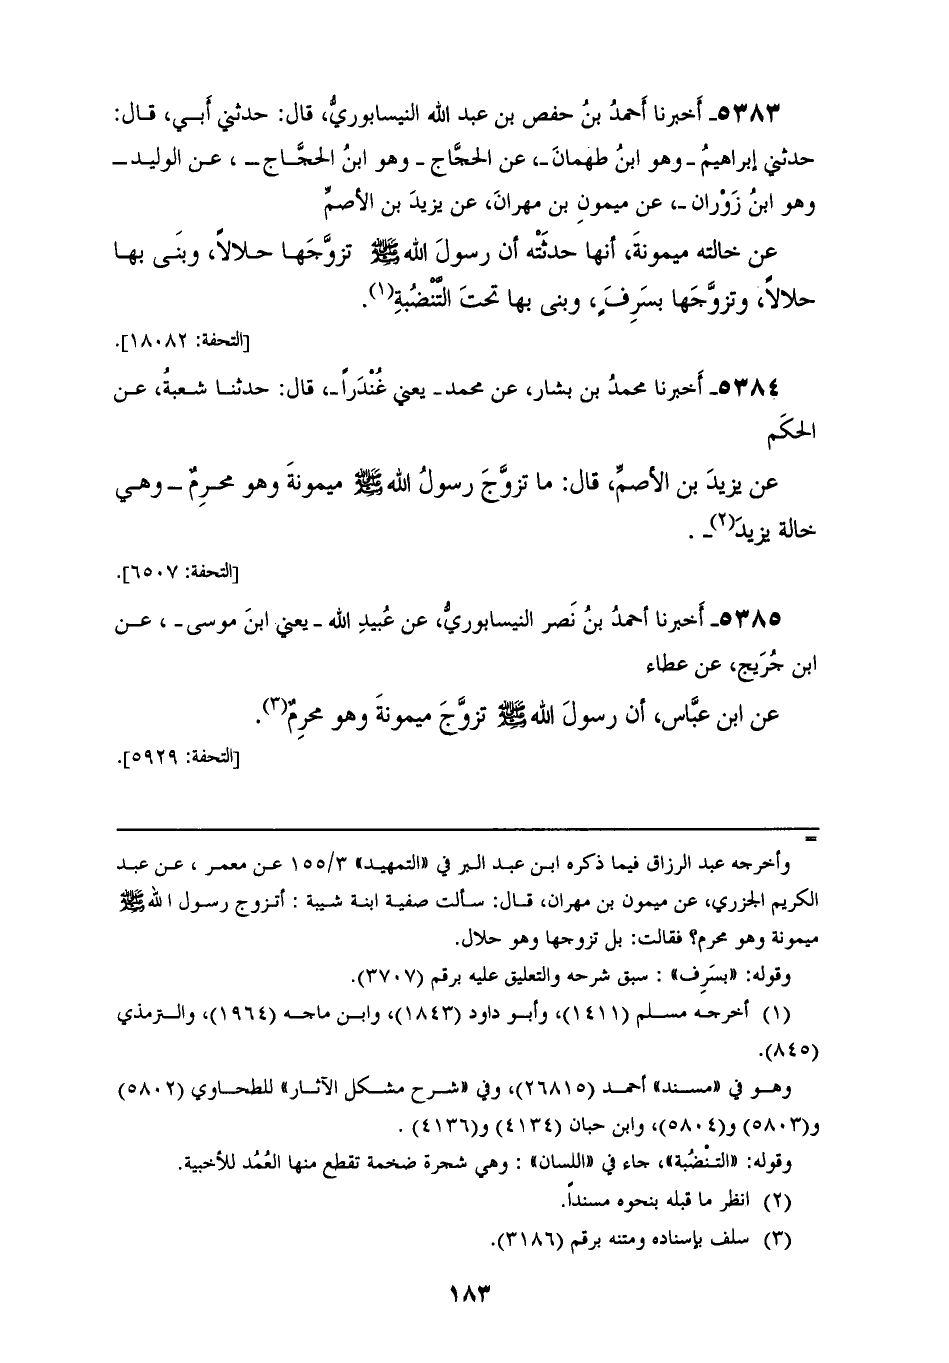 ٥٣٨٣ـ أَخبرنا أَحمدُ بنُ حفص بن عبد الله النيسابوريُّ، قال: حدثني أَبي، قال:
حدثني إبراهيمُ ـ وهو ابنُ طهمانَ ـ، عن الحجَّاج ـ وهو ابنُ الحجَّاج ـ ، عن الوليد ـ
وهو ابنُ زَوْران ـ، عن ميمونِ بن مهرانَ، عن يزيدَ بن الأصمِّ
عن خالته ميمونةَ، أنها حدثَتْه أن رسولَ الله ﷺ تزوَّجَها حلالاً، وبنَى بها
حلالاً، وتزوَّجَها بسَرِفَ، وبنى بها تحتَ التَّنْضُبةِ(١).
[التحفة: ١٨٠٨٢].
٥٣٨٤ـ أَخبرنا محمدُ بن بشار، عن محمد ـ يعني غُنْدَراً ـ، قال: حدثنا شعبةُ، عن
الحكَم
عن يزيدَ بن الأصمِّ، قال: ما تزوَّجَ رسولُ الله ﷺ ميمونةَ وهو محرِمٌ ـ وهي
خالة يزيدَ(٢) ـ .
[التحفة: ٦٥٠٧].
٥٣٨٥ـ أَخبرنا أحمدُ بنُ نَصر النيسابوريُّ، عن عُبيدِ الله ـ يعني ابنَ موسى ـ ، عن
ابن جُرَيج، عن عطاء
عن ابن عبَّاس، أن رسولَ الله ﷺ تزوَّجَ ميمونةَ وهو محرِمٌ(٣).
[التحفة: ٥٩٢٩].
=
وأخرجه عبد الرزاق فيما ذكره ابن عبد البر في «التمهيد» ١٥٥/٣ عن معمر ، عن عبد
الكريم الجزري، عن ميمون بن مهران، قال: سألت صفية ابنة شيبة : أتزوج رسول الله ﷺ
ميمونة وهو محرم؟ فقالت: بل تزوجها وهو حلال.
وقوله: «بسَرِف» : سبق شرحه والتعليق عليه برقم (٣٧٠٧).
(١) أخرجه مسلم (١٤١١)، وأبو داود (١٨٤٣)، وابن ماجه (١٩٦٤)، والترمذي
(٨٤٥).
وهو في «مسند» أحمد (٢٦٨١٥)، وفي «شرح مشكل الآثار» للطحاوي (٥٨٠٢)
و(٥٨٠٣) و(٥٨٠٤)، وابن حبان (٤١٣٤) و(٤١٣٦) .
وقوله: «التنْضُبة»، جاء في «اللسان» : وهي شجرة ضخمة تقطع منها العُمُد للأخبية.
(٢) انظر ما قبله بنحوه مسنداً.
(٣) سلف بإسناده ومتنه برقم (٣١٨٦).
١٨٣